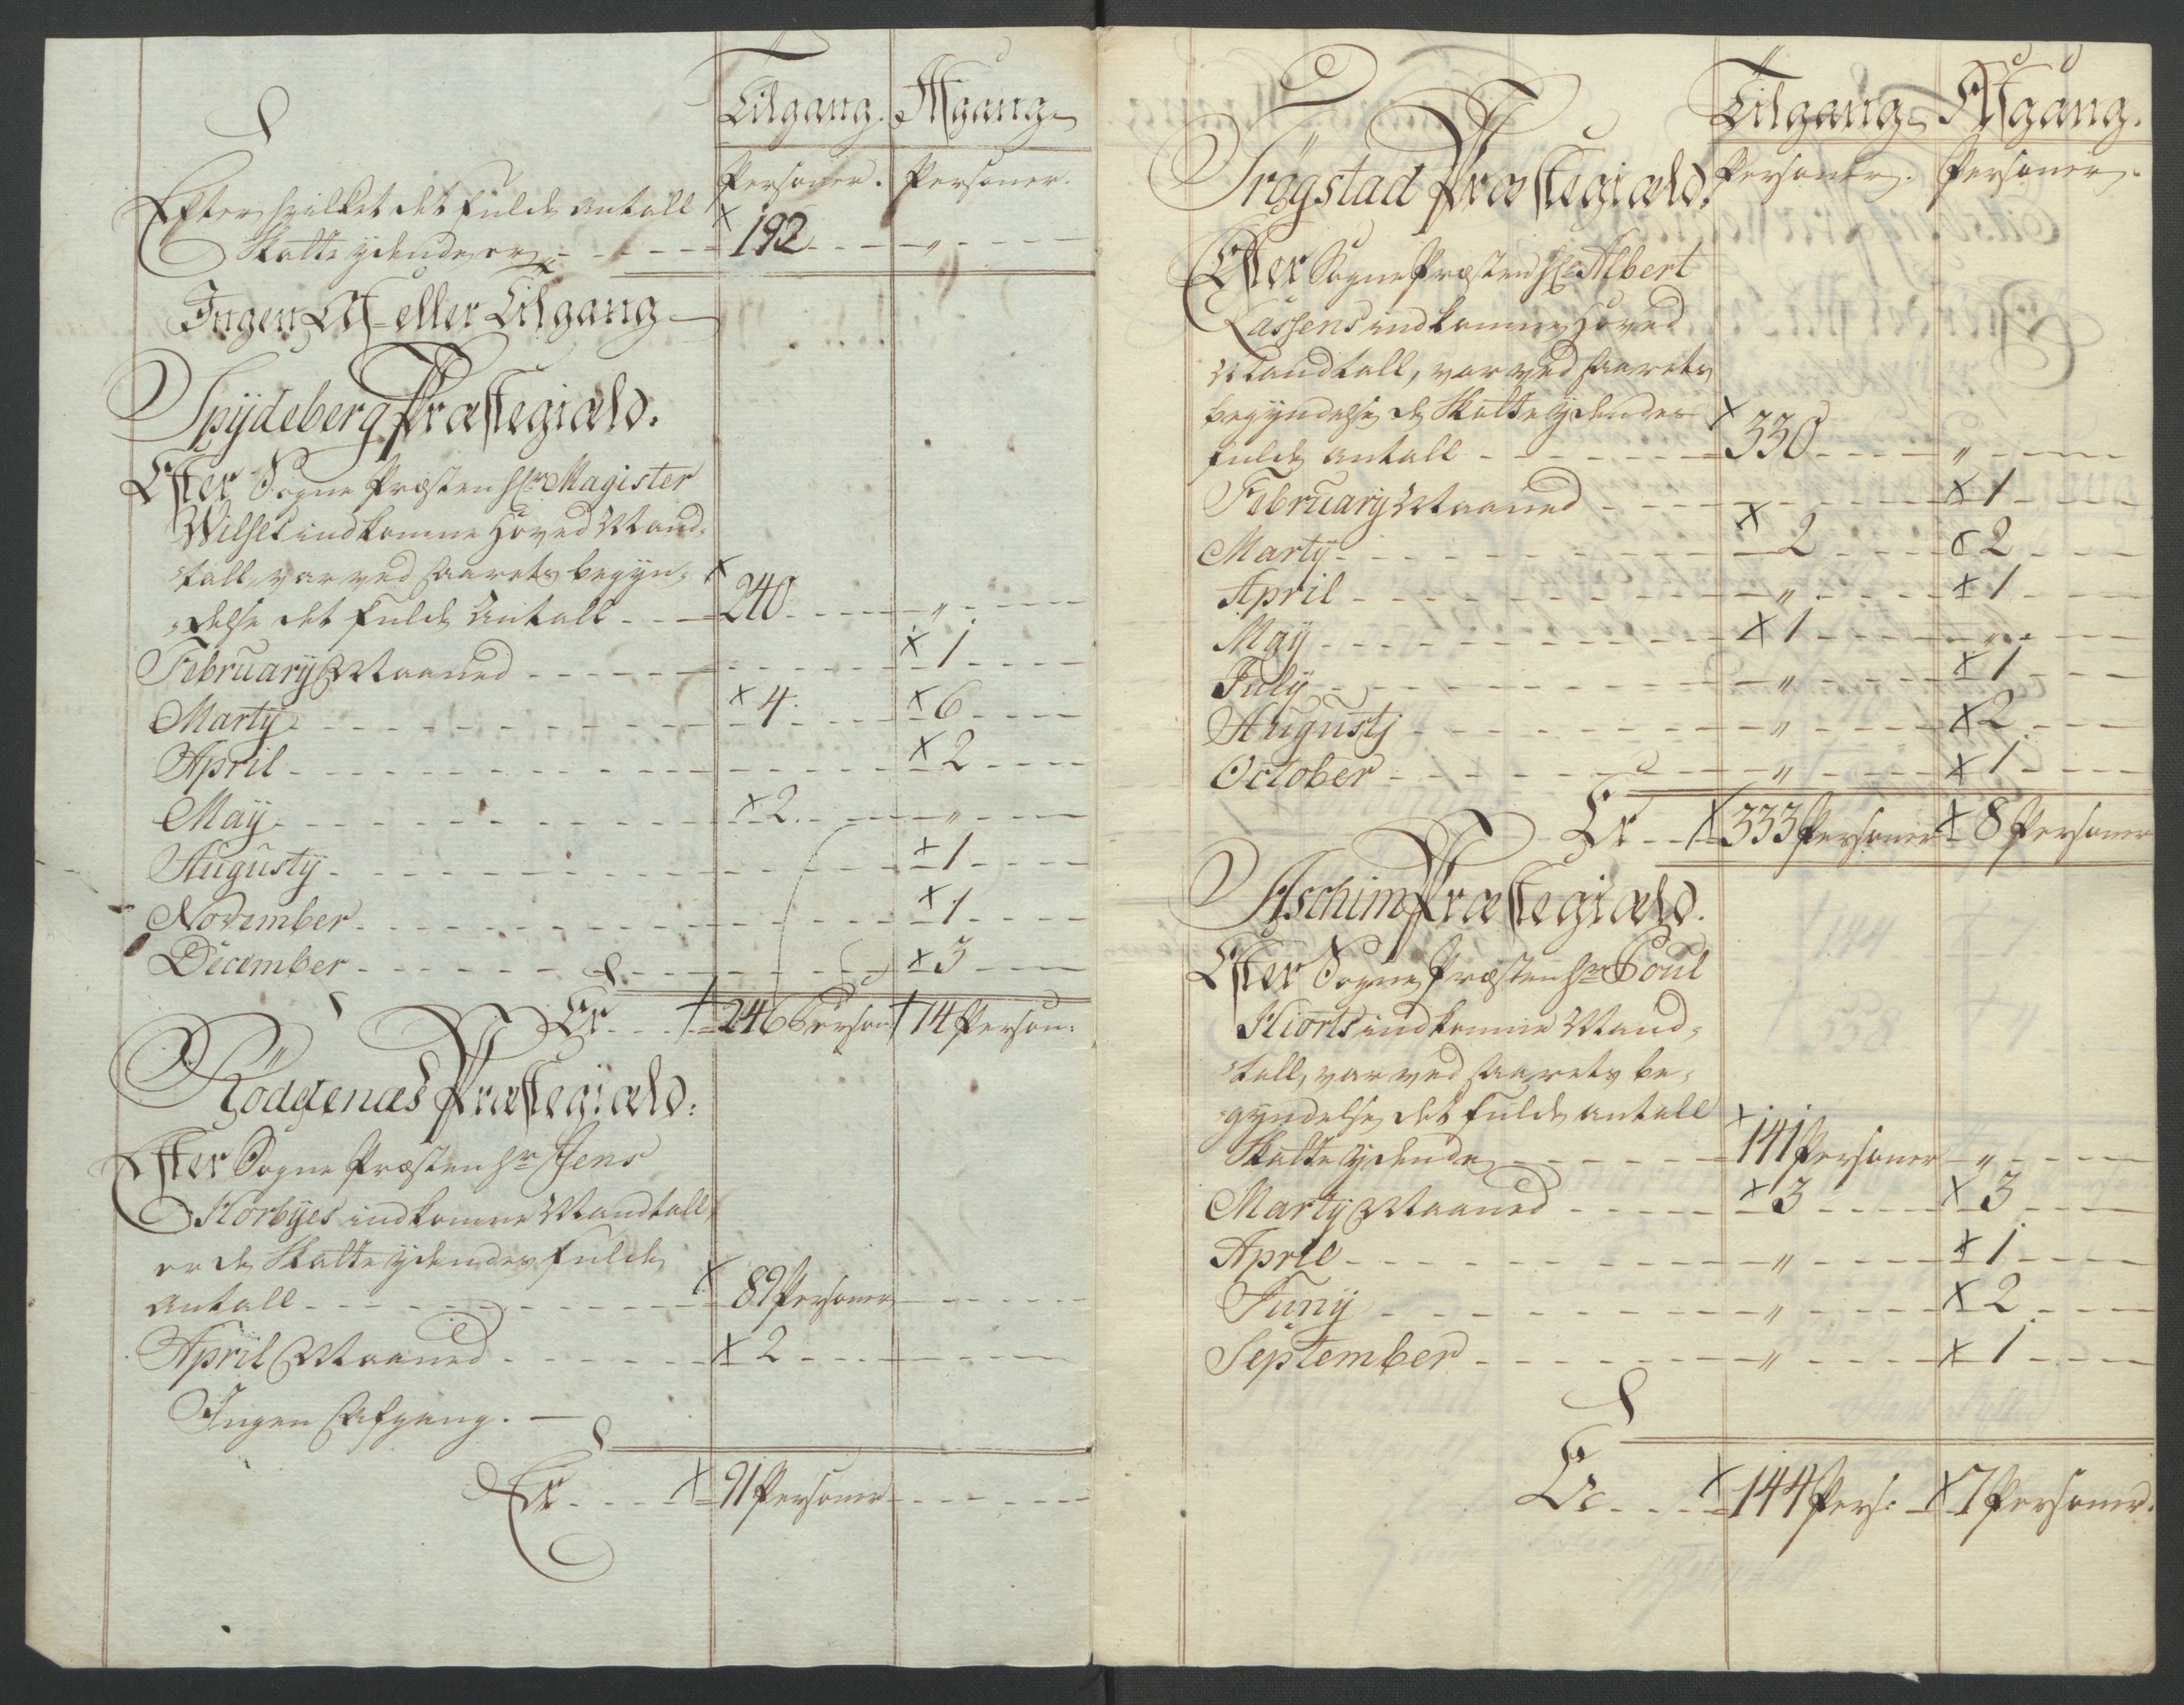 Tilgang. Afgang
Personer. Personer.
Efter hvilket det fulde antall
Skatte ydende er - - - 192 - - - „ - - -
Ingen Af- eller Tilgang
Spÿdeberg Præstegiæld.
Efter Sogne Præsten Hr. Magister
Wilses indkomne Hoved Mand-
tall, var ved Aarets begyn-
delse det fulde Antall - - - 240 - - - „ - - -
Februarÿ Maaned - - - 1 - - -
Martÿ - - - 4. - - - 6 - - -
April - - - 2 - - -
Maÿ - - - 2. - - - „ - - -
Augustÿ - - - 1 - - -
November - - - 1 - - -
December - - - 3 - - -
Er - - - 246 Person 14 Person:
Röddenæs Præstegiæld.
Efter Sogne Præsten Hr Jens
Korbÿes indkomne Mandtall,
er de Skatte ydendes fulde
Antall - - - 89 Personer - - -
April Maaned - - - 2 - - -
Ingen Afgang. -
Er - - - 91 Personer - - -
Tilgang Afgang.
Trögstad Præstegiæld. Personer. Personer.
Efter Sogne Præsten Hr Albert
Lassens indkomne Hoved
Mandtall, var ved Aarets
begyndelse de Skatte ydendes
fulde antall - - - 330 - - - „ - - -
Februarÿ Maaned - - - 1 - - -
Martÿ - - - 2 - - - 2 - - -
April - - - „ - - - 1 - - -
Maÿ - - - 1 - - - „ - - -
Julÿ - - - „ - - - 1 - - -
Augustj - - - „ - - - 2 - - -
October - - - „ - - - 1 - - -
Er - - - 333 Personer 8 Personer
Aschim Præstegiæld.
Efter Sogne Præsten Hr Poul
Hiorts indkomne Mand-
tall, var ved Aarets be-
gyndelse det fulde antall
Skatte ydende - - - 141 Personer - „ - - -
Martÿ Maaned - - - 3 - - - 3 - - -
April - - - „ - - - 1 - - -
Junÿ - - - „ - - - 2 - - -
September - - - „ - - - 1 - - -
Er - - - 144 Pers: - 7 Personer.